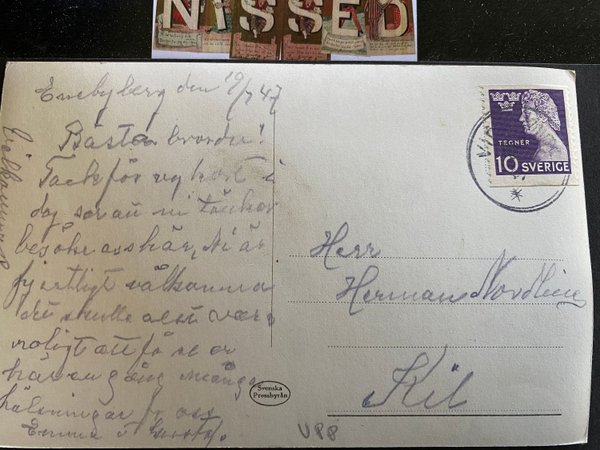 NISSED
Enebyberg den 19/7 47
Bästa broder!
Tack för vykort i
dag som ni tänker
besöka oss här, Ni är
hjertligt välkomna
det skulle allt vara
roligt att få se er
här en gång många
hälsningar fr oss
Emma o Gustaf.
Välkomna
TEGNER
10 SVERIGE
Herr
Herman Nordlin
Kil
Svenska
Pressbyrån
UPP